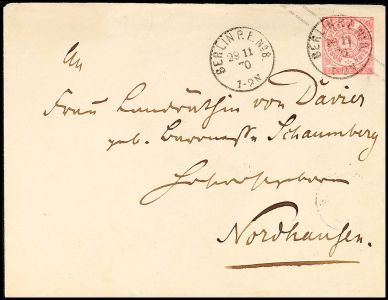 BERLIN P.E. No 8.
29 11
70
7-2N
An
Frau Landräthin von Davier
geb. Baronesse Schaumberg
Hochwohlgeboren
Nordhausen.